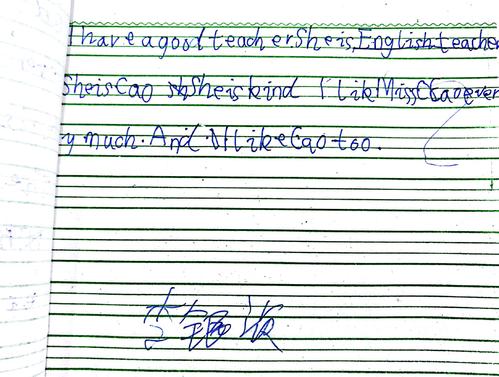 I have a good teacher She is English teacher
She is Cao She is kind I like Miss Cao ver
y much. And I like Cao too.